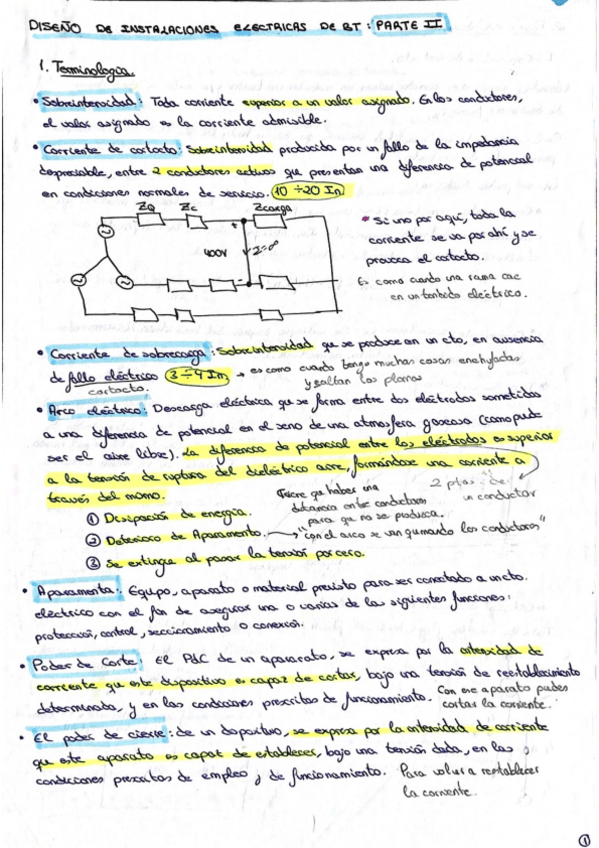 DISEÑO DE INSTALACIONES ELECTRICAS DE BT: PARTE II
1. Terminología.
• Sobreintensidad: Toda corriente superior a un valor asignado. En los conductores,
el valor asignado es la corriente admisible.
• Corriente de cortocto: Sobreintensidad producida por un fallo de la impedancia
depreciable, entre 2 conductores activos que presentan una diferencia de potencial
en condiciones normales de servicio. 10 ÷ 20 In
ZQ Zc Zcarga
400V
* Si no por aquí, toda la
corriente se va por ahí y se
provoca el cortocto.
Es como cuando una rama cae
en un tendido eléctrico.
• Corriente de sobrecarga: Sobreintensidad que se produce en un cto, en ausencia
de fallo eléctrico 3 ÷ 4 In → es como cuando tengo muchas cosas enchufadas
cortocto. y saltan los plomos
• Arco eléctrico: Descarga eléctrica que se forma entre dos electrodos sometidos
a una diferencia de potencial en el seno de una atmósfera gaseosa (como pude
ser el aire libre). La diferencia de potencial entre los eléctrodos es superior
a la tensión de ruptura del dieléctrico aire, formándose una corriente a
través del mismo.
2 ptos de
un conductor
Tiene que haber una
distancia entre conductores
para que no se produzca.
① Disipación de energía.
② Deterioro de Aparamento. → "con el arco se van quemando los conductores"
③ Se extingue al pasar la tensión por cero.
• Aparamenta: Equipo, aparato o material previsto para ser conectado a un cto.
eléctrico con el fin de asegurar una o varias de las siguientes funciones:
protección, control, seccionamiento o conexión.
• Poder de Corte: El PdC de un aparato, se expresa por la intensidad de
corriente que este dispositivo es capaz de cortar, bajo una tensión de reestablecimiento
determinada, y en las condiciones prescritas de funcionamiento. Con ese aparato puedes
cortar la corriente.
• El poder de cierre: de un dispositivo, se expresa por la intensidad de corriente
que este aparato es capat de establecer, bajo una tensión dada, en las
condiciones prescritas de empleo y de funcionamiento. Para volver a restablecer
la corriente.
①